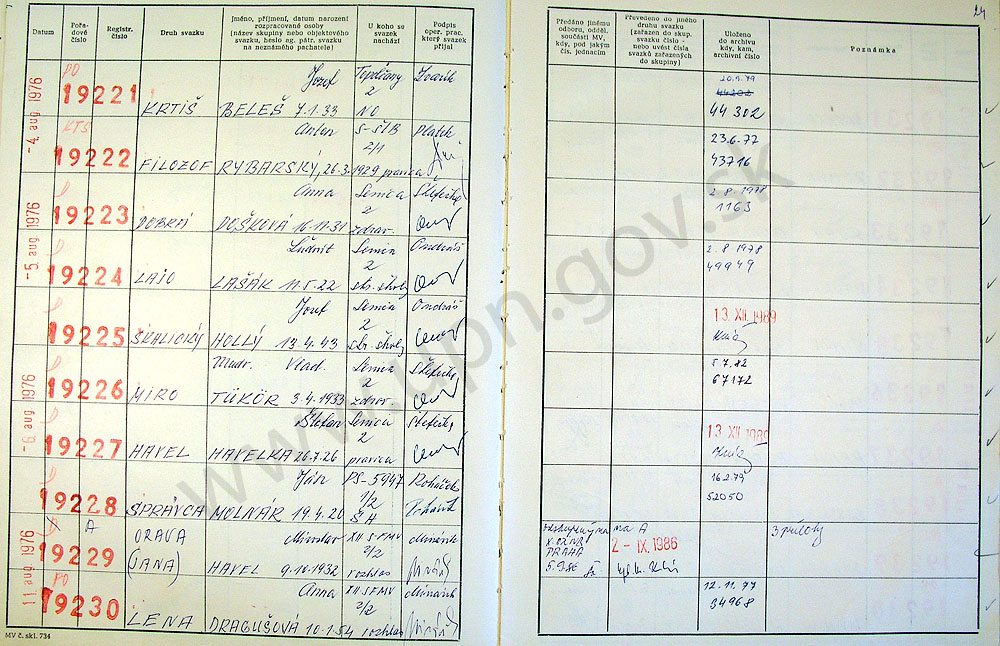 24
Datum
Pořadové číslo
Registr. číslo
Druh svazku
Jméno, příjmení, datum narození rozpracované osoby (název skupiny nebo objektového svazku, heslo ag. pátr. svazku na neznámého pachatele)
U koho se svazek nachází
Podpis oper. prac. který svazek přijal
Předáno jinému odboru, odděl. součásti MV, kdy, pod jakým čís. jednacím
Převedeno do jiného druhu svazku (zařazen do skup. svazku číslo - nebo uvést čísla svazků zařazených do skupiny)
Uloženo do archivu kdy, kam, archivní číslo
Poznámka
-4. aug 1976
PO
19221
KRTIŠ
Jozef
BELEŠ 7.1.33
Topoľčany
2
NO
20.9.79
44202
44 302
KTS
19222
FILOZOF
Anton
RYBARSKÝ, 26.3.1929
S-ŠTB
2/1
pravica
Platek
23.6.77
43716
-5. aug 1976
D
19223
DOBRÁ
Anna
DOŠKOVÁ 16.11.31
Senica
2
zdrav.
2.8.1978
1163
D
19224
LAJO
Ľudmit
LAŠÁK 11.5.22
Senica
2
str. školy
Ondráš
2 8 1978
49949
19225
SKALICKÝ
Jozef
HOLLÝ 13.4.43
Senica
2
str. školy
Ondráš
13. XII. 1989
-6. aug 1976
D
19226
MIRO
Mudr. Vlad.
TÜKÖR 3.4.1933
Senica
2
zdrav.
5 7. 82
67172
D
19227
HAVEL
Štefan
HAVELKA 26.7.26
Senica
2
pravica
13 XII. 1989
D
19228
SPRÁVCA
Ján
MOLNÁR 19.4.20
PS-5947
1/2
ŠA
Roháček
16.2.79
52050
11 aug 1976
D
A
19229
ORAVA
(JANA)
Miroslav
HAVEL 9.10.1932
XII SFMV
2/2
rozhlas
Minárik
X. OZNB
PRAHA
na A
2 - IX. 1986
PO
19230
LENA
Anna
DRAGUŠOVÁ 10.1.54
XII SFMV
2/2
rozhlas
Minárik
12.11.77
34968
MV č. skl. 734
www.upn.gov.sk